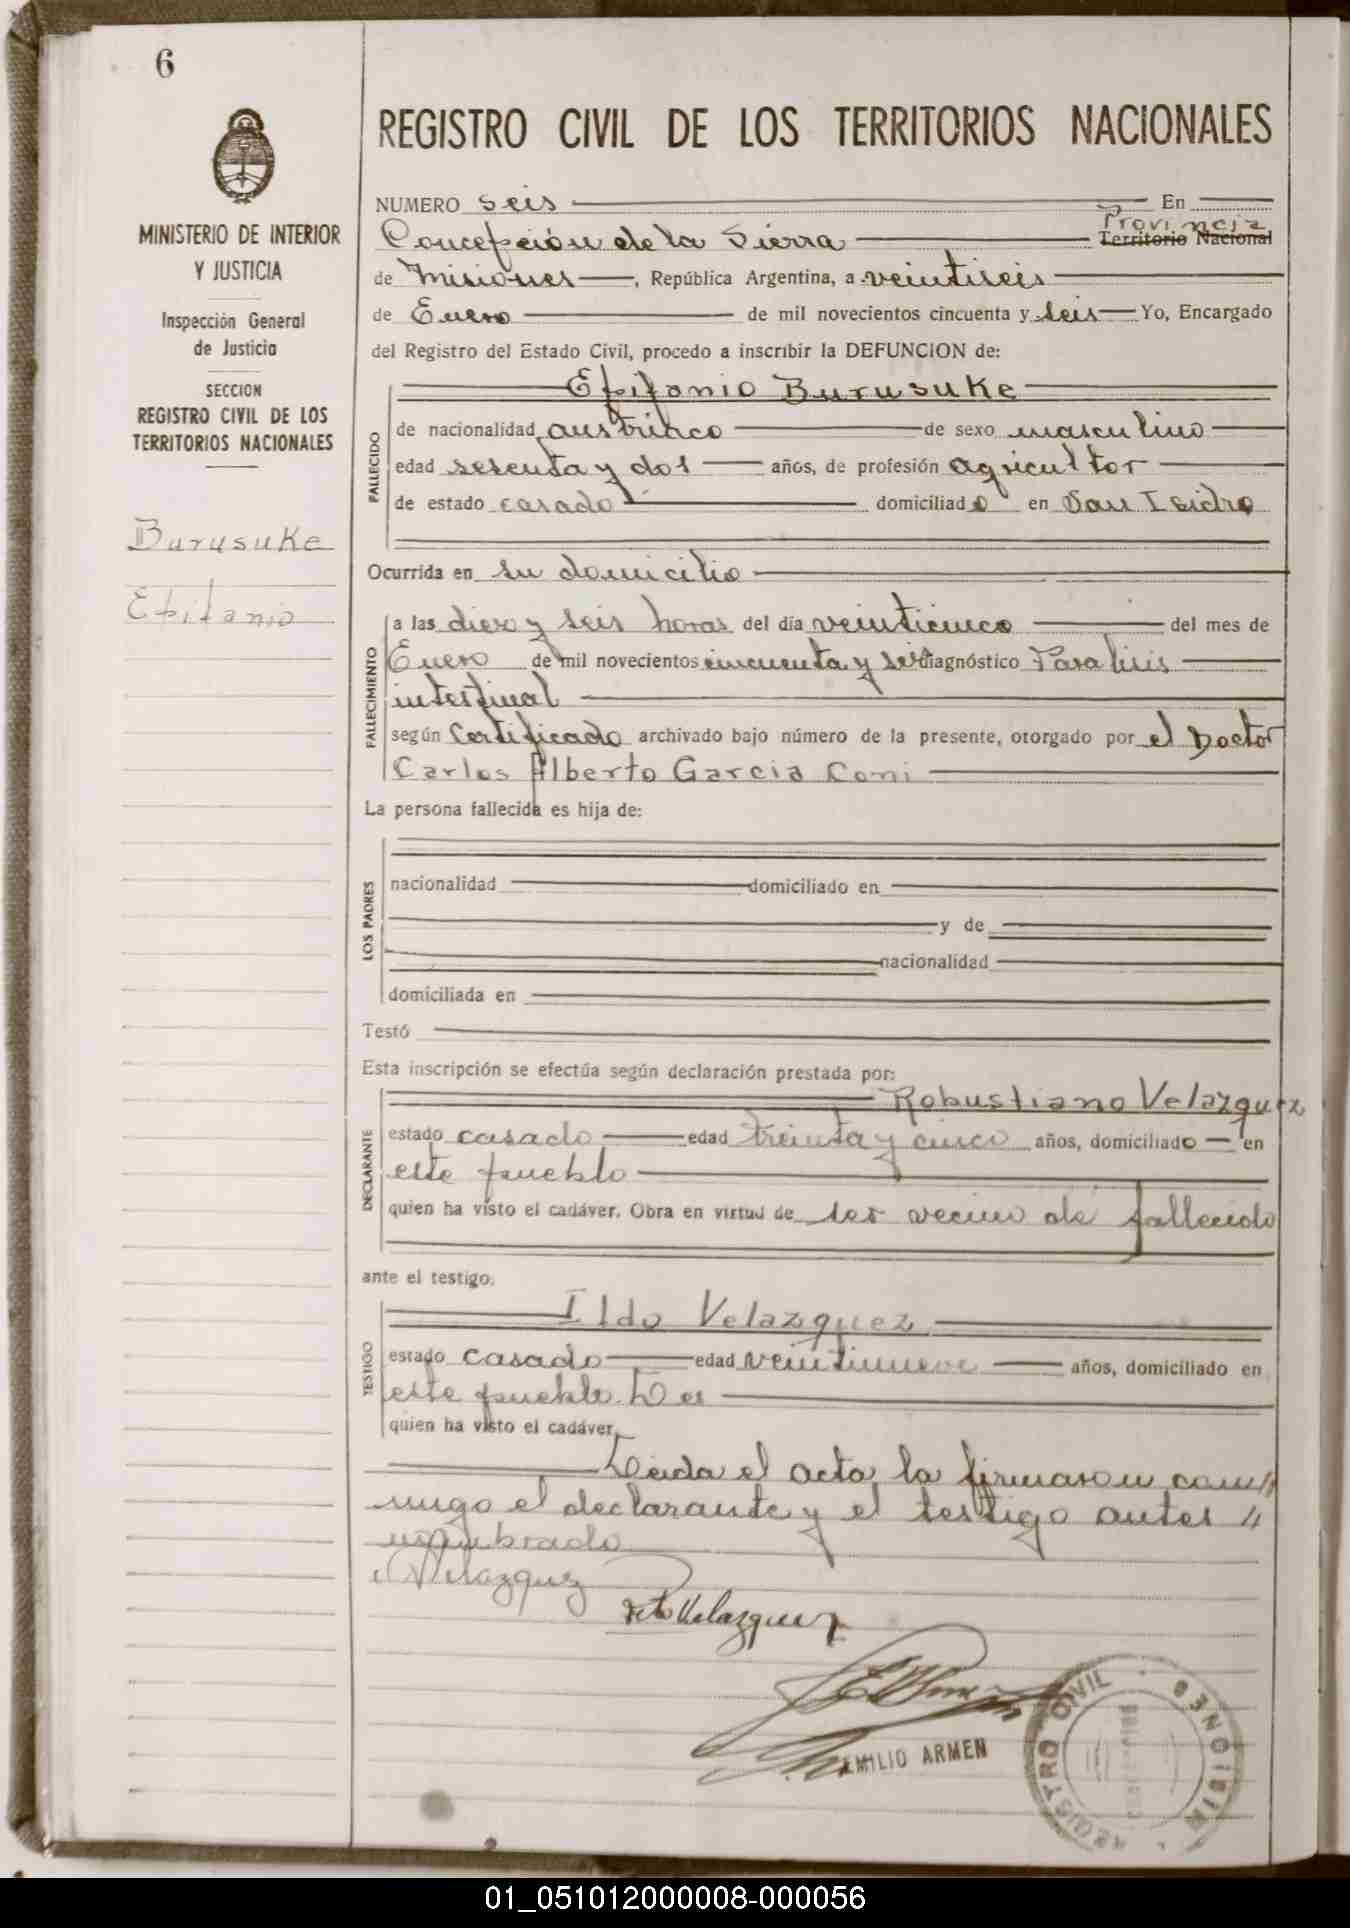 6
MINISTERIO DE INTERIOR
Y JUSTICIA
Inspección General
de Justicia
SECCION
REGISTRO CIVIL DE LOS
TERRITORIOS NACIONALES
Burusuke
Epifanio
REGISTRO CIVIL DE LOS TERRITORIOS NACIONALES
NUMERO seis En
Provincia
Concepción de la Sierra Territorio Nacional
de Misiones, República Argentina, a veintiseis
de Enero de mil novecientos cincuenta y seis Yo, Encargado
del Registro del Estado Civil, procedo a inscribir la DEFUNCION de:
FALLECIDO
Epifanio Burusuke
de nacionalidad austriaco de sexo masculino
edad sesenta y dos años, de profesión agricultor
de estado casado domiciliado en San Isidro
Ocurrida en su domicilio
FALLECIMIENTO
a las diez y seis horas del día veinticinco del mes de
Enero de mil novecientos cincuenta y seis diagnóstico Paralisis
intestinal
según Certificado archivado bajo número de la presente, otorgado por el Doctor
Carlos Alberto Garcia Coni
La persona fallecida es hija de:
LOS PADRES
nacionalidad domiciliado en
y de
nacionalidad
domiciliada en
Testó
Esta inscripción se efectúa según declaración prestada por:
DECLARANTE
Robustiano Velazquez
estado casado edad treinta y cinco años, domiciliado en
este pueblo
quien ha visto el cadáver. Obra en virtud de ser vecino de fallecido
ante el testigo:
TESTIGO
Ildo Velazquez
estado casado edad veintinueve años, domiciliado en
este pueblo
quien ha visto el cadáver.
Leida el acta, la firmaron con//
migo el declarante y el testigo antes //
nombrado
Velazquez
Velazquez
EMILIO ARMEN
REGISTRO CIVIL MISIONES
01_051012000008-000056